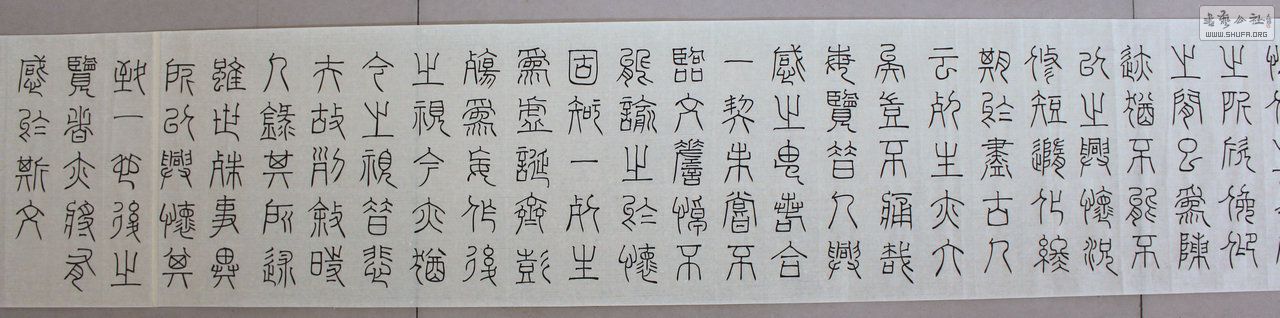 之所欣俛仰
之閒已爲陳
迹猶不能不
以之興懷況
修短隨化終
期於盡古人
云死生亦大
矣豈不痛哉
每覽昔人興
感之由若合
一契未嘗不
臨文嗟悼不
能諭之於懷
固知一死生
爲虛誕齊彭
殤爲妄作後
之視今亦猶
今之視昔悲
夫故列敘時
人錄其所述
雖世殊事異
所以興懷其
致一也後之
覽者亦將有
感於斯文
書藝公社
WWW.SHUFA.ORG